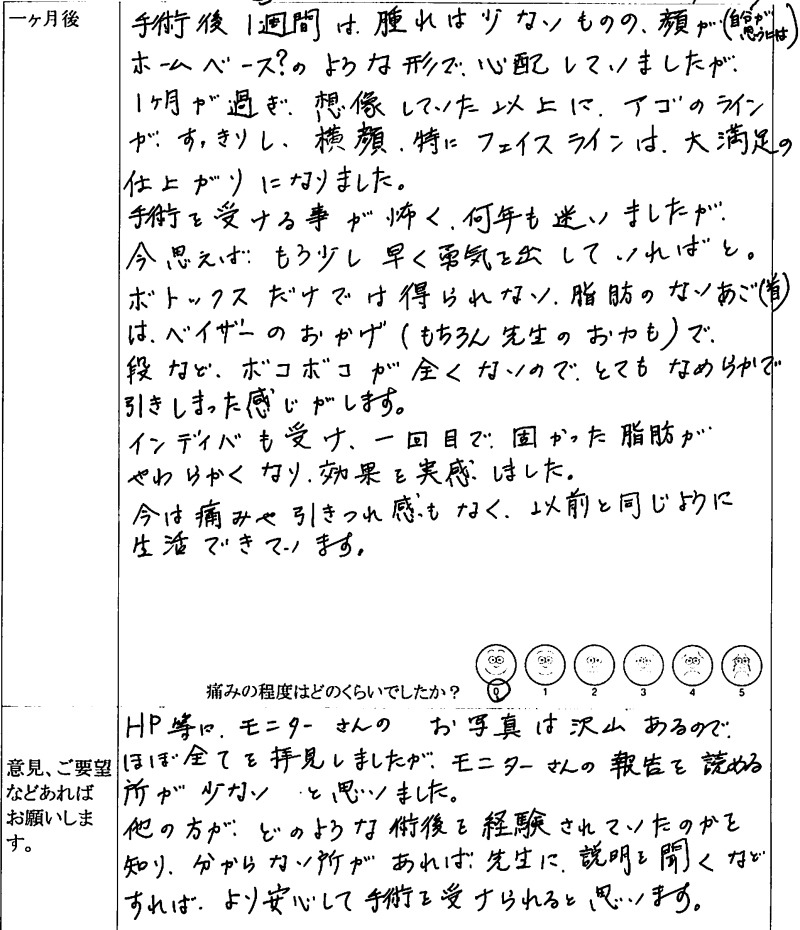 一ヶ月後
手術後1週間は、腫れは少ないものの、顔が(自分が思うには)
ホームベース?のような形で、心配していましたが、
1ヶ月が過ぎ、想像していた以上に、アゴのライン
が、すっきりし、横顔、特にフェイスラインは、大満足の
仕上がりになりました。
手術を受ける事が怖く、何年も迷いましたが、
今思えば、もう少し早く勇気を出していればと。
ボトックスだけでは得られない、脂肪のないあご(首)
は、ベイザーのおかげ(もちろん先生のお力も)で、
段など、ボコボコが全くないので、とてもなめらかで
引きしまった感じがします。
インディバも受け、一回目で、固かった脂肪が
やわらかくなり、効果を実感しました。
今は痛みや引きつれ感もなく、以前と同じように
生活できています。
痛みの程度はどのくらいでしたか?
0 1 2 3 4 5
意見、ご要望
などあれば
お願いしま
す。
HP等に、モニターさんの お写真は沢山あるので、
ほぼ全てを拝見しましたが、モニターさんの報告を読める
所が少ない と思いました。
他の方が、どのような術後を経験されていたのかを
知り、分からない所があれば、先生に、説明を聞くなど
すれば、より安心して手術を受けられると思います。